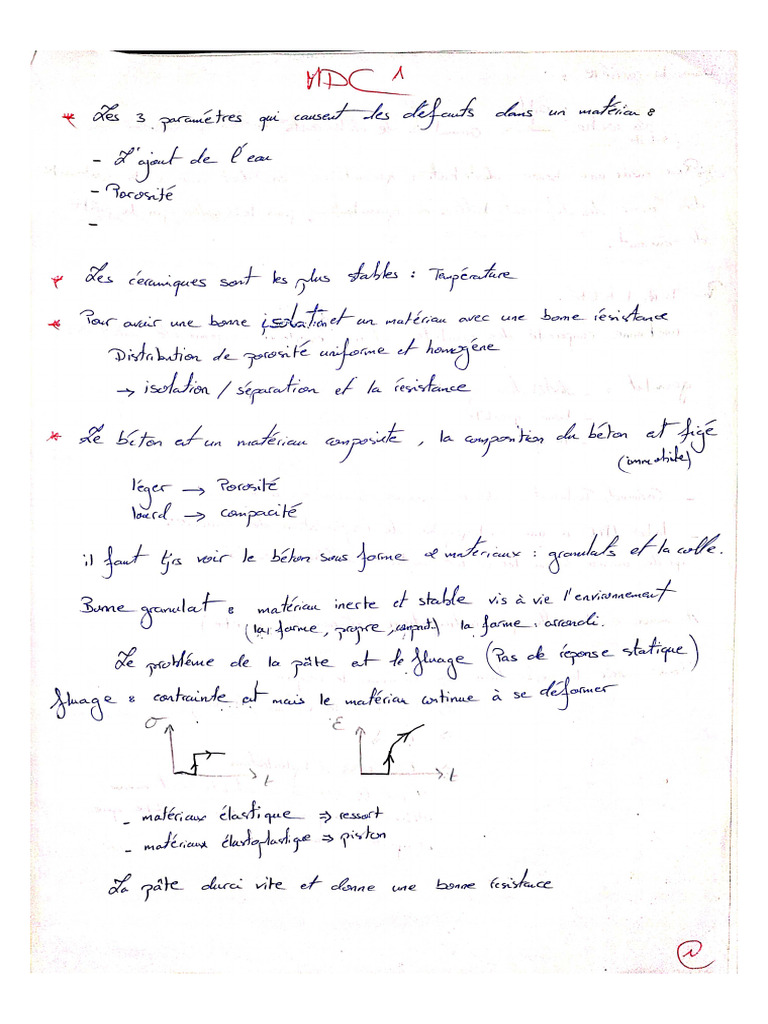 MDC 1
* Les 3 paramètres qui causent les défauts dans un matériau :
- L'ajout de l'eau
- Porosité
-
* Les céramiques sont les plus stables : Température
* Pour avoir une bonne isolation et un matériau avec une bonne résistance
Distribution de porosité uniforme et homogène
→ isolation / séparation et la résistance
* Le béton est un matériau composite, la composition du béton est figé
(immobile)
léger → Porosité
lourd → compacité
il faut tjrs voir le béton sous forme 2 matériaux : granulats et la colle.
Bonne granulat : matériau inerte et stable vis à vie l'environnement
(la forme, propre, compact.) la forme : arrondi.
Le problème de la pâte est le fluage (Pas de réponse statique)
fluage : contrainte est mais le matériau continue à se déformer
σ t ε t
- matériaux élastique ⇒ ressort
- matériaux élastoplastique ⇒ piston
La pâte durci vite et donne une bonne resistance